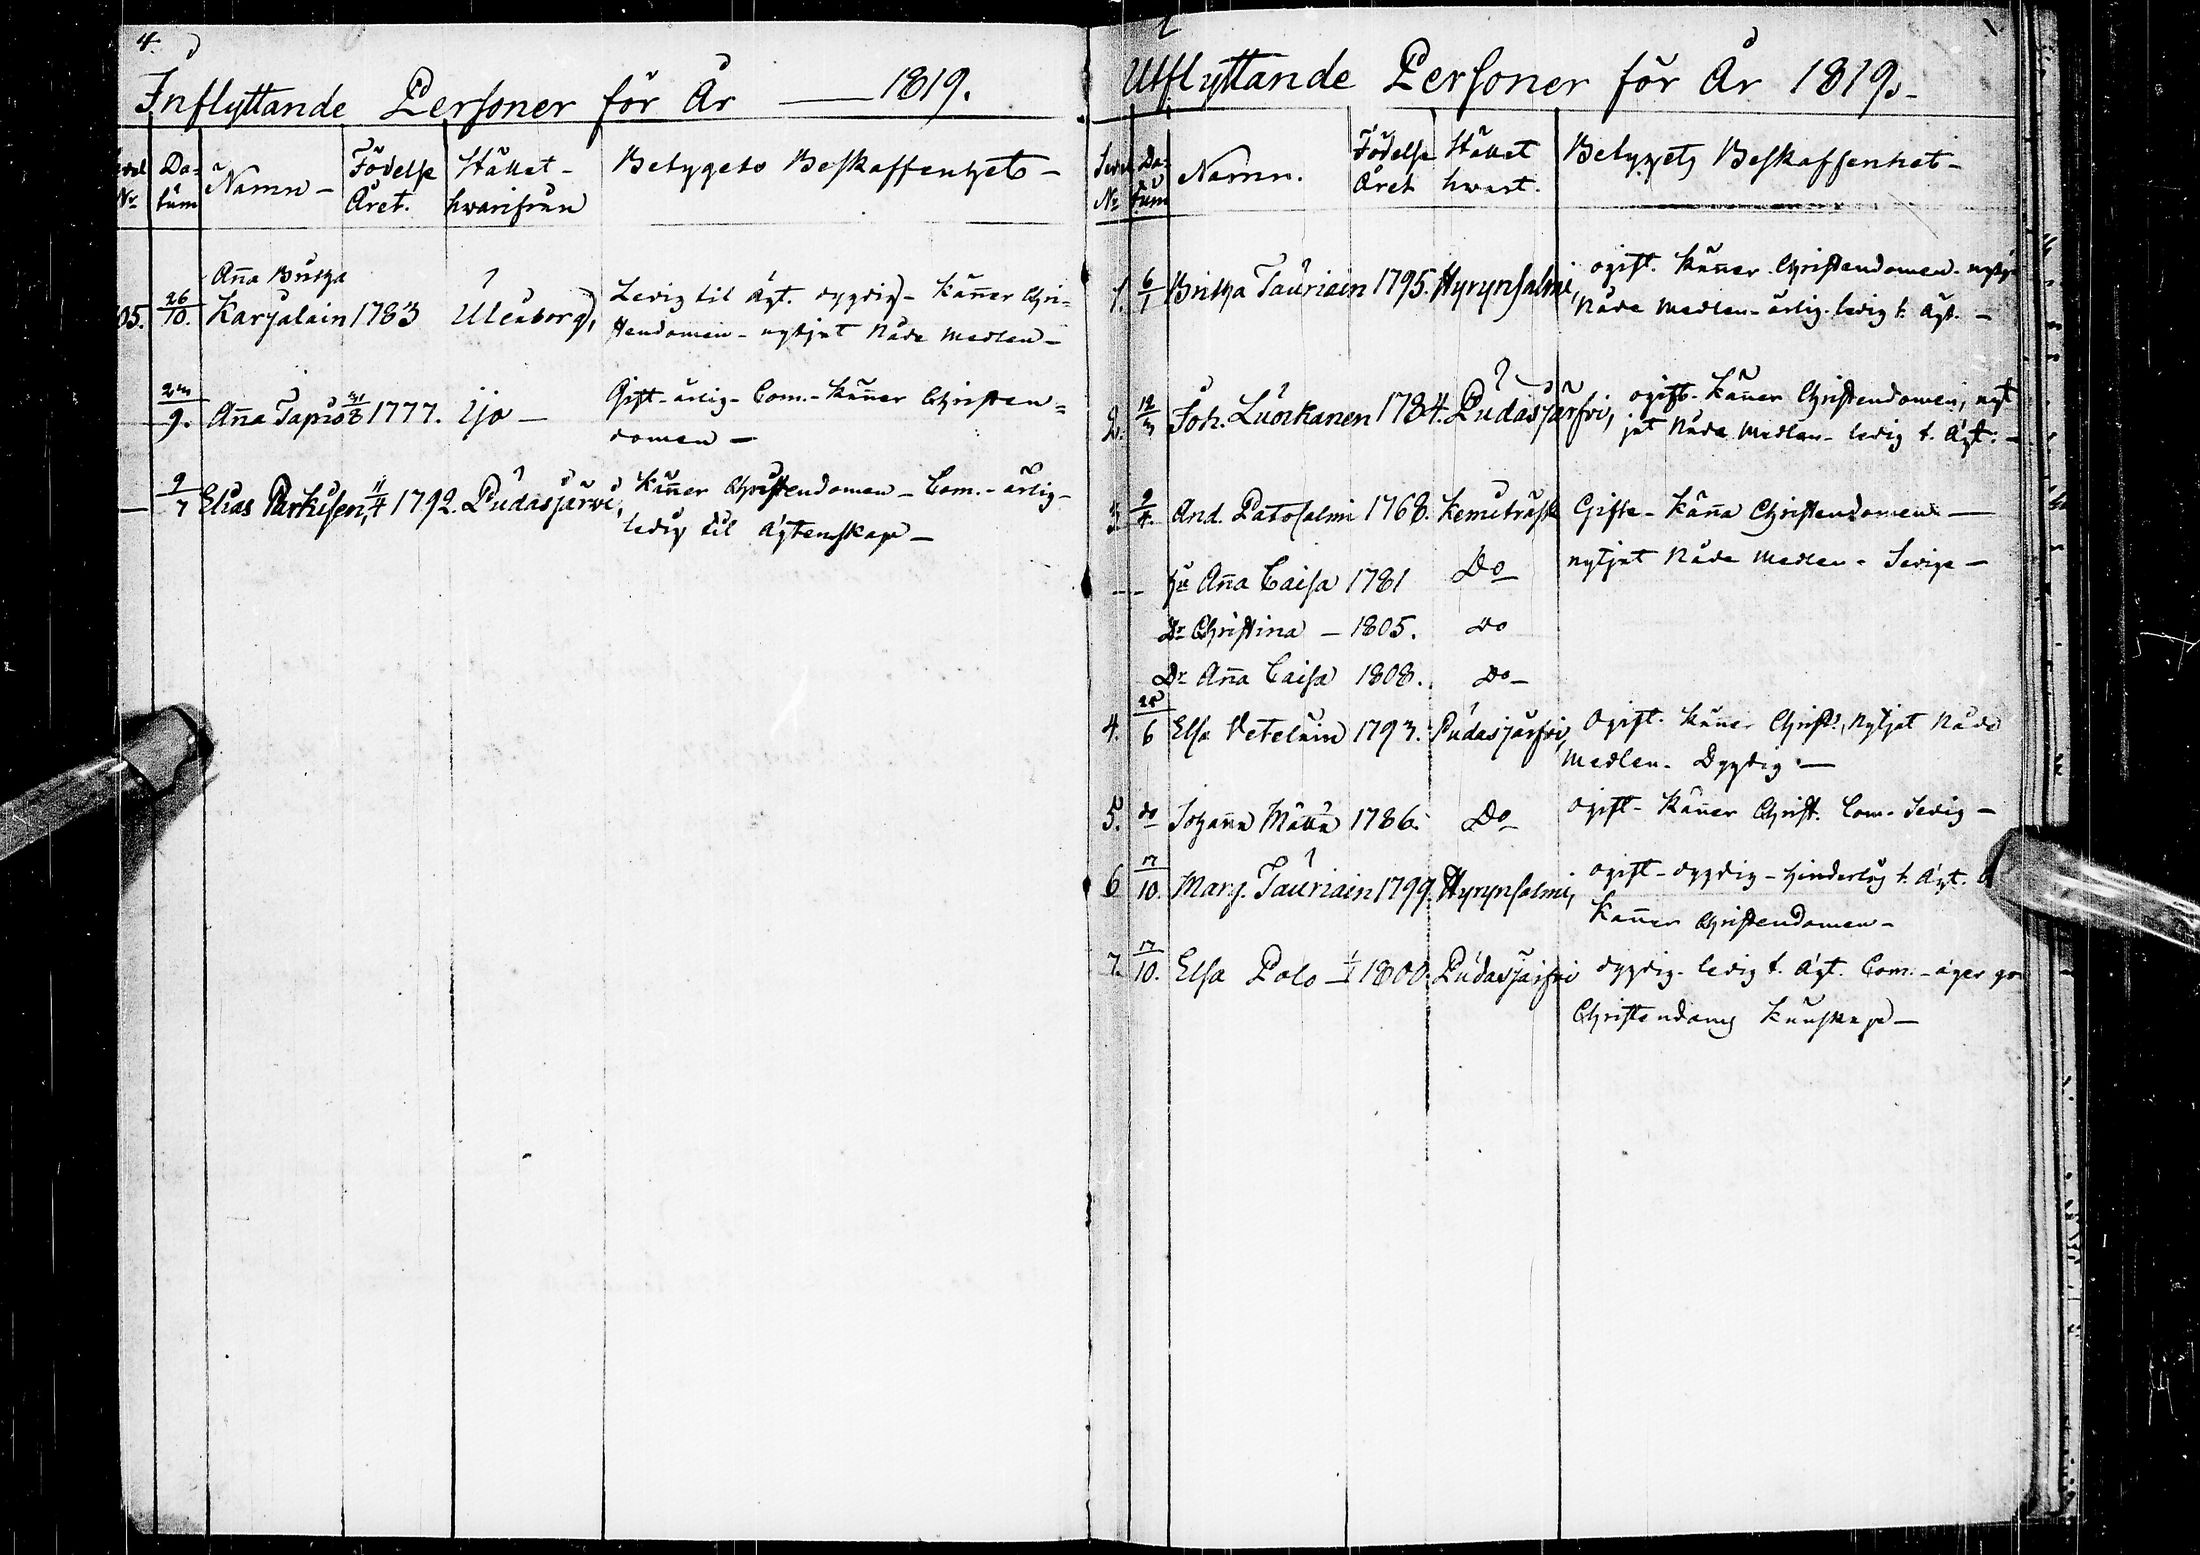 4.
Inflyttande Personer för År — 1819.
Da-
tum
Namn -
Födelse
Året.
Stället -
hvarifrån
Betygets Beskaffenhet -
Nr
05. 26/10. Anna Britha
Karjalain 1783 Uleåborg, Ledig til ägt. dygdig - Känner Chri-
stendomen - nyttjat Nåde medlen -
9. Anna Tapio 31/8 1777. Ijo - Gift - ärlig - Com. - Känner Christen=
domen -
— 9/7 Elias Parkisen, 11/4 1792. Pudasjärwi, Känner Christendomen - Com. - ärlig -
ledig til ägtenskap -
Utflyttande Personer för År 1819. -
No
Da-
tum
Namn.
Födelse
Året
Stället
hwart.
Betygets Beskaffenhet -
1. 6/1 Britha Tauriain 1795. Hyrynsalmi, ogift. Känner Christendomen - nyttj
Nåde medlen - ärlig - ledig t. ägt. -
2. 12/3 Joh. Luokkanen 1784. Pudasjärfvi, ogift - Känner Christendomen, nyt
jat Nåde medlen - ledig t. ägt. -
3 9/4. And. Patosalmi 1768. Kemiträsk Gifte - Känna Christendomen —
nytjat Nåde medlen -
— hu Anna Caisa 1781 Do
Dr Christina - 1805. Do
Dr Anna Caisa 1808. Do -
4. 25/6 Elsa Vetelain 1793. Pudasjärfvi, Ogift. Känner Christ., Nytjat Nåde
medlen - Dygdig —
5. do Johanna 1786. Do ogift - Känner Christ. Com. -
6 17/10. Marg. Tauriain 1799. Hyrynsalmi, ogift - dygdig - hinderlös t. ägt.
Känner Christendomen -
7. 17/10. Elsa Polo 1800. Pudasjärfvi dygdig - ledig t. ägt. Com. - äger
Christendoms Kunskap -